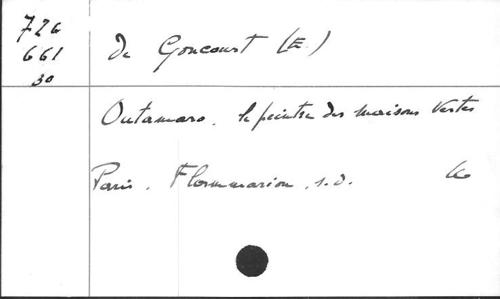 726
661
30
de Goncourt (E.)
Outamaro. le peintre des maisons vertes
Paris. Flammarion, s.d.